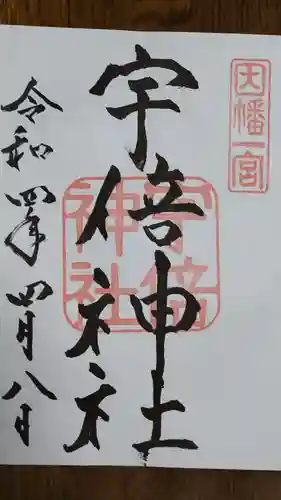 因幡一宮
宇倍神社
宇倍神社
令和四年四月八日